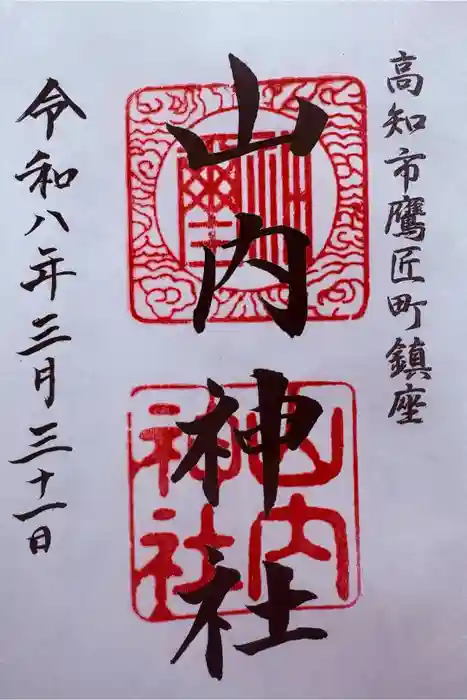 高知市鷹匠町鎮座
山内神社
令和八年三月三十一日
山内
神社